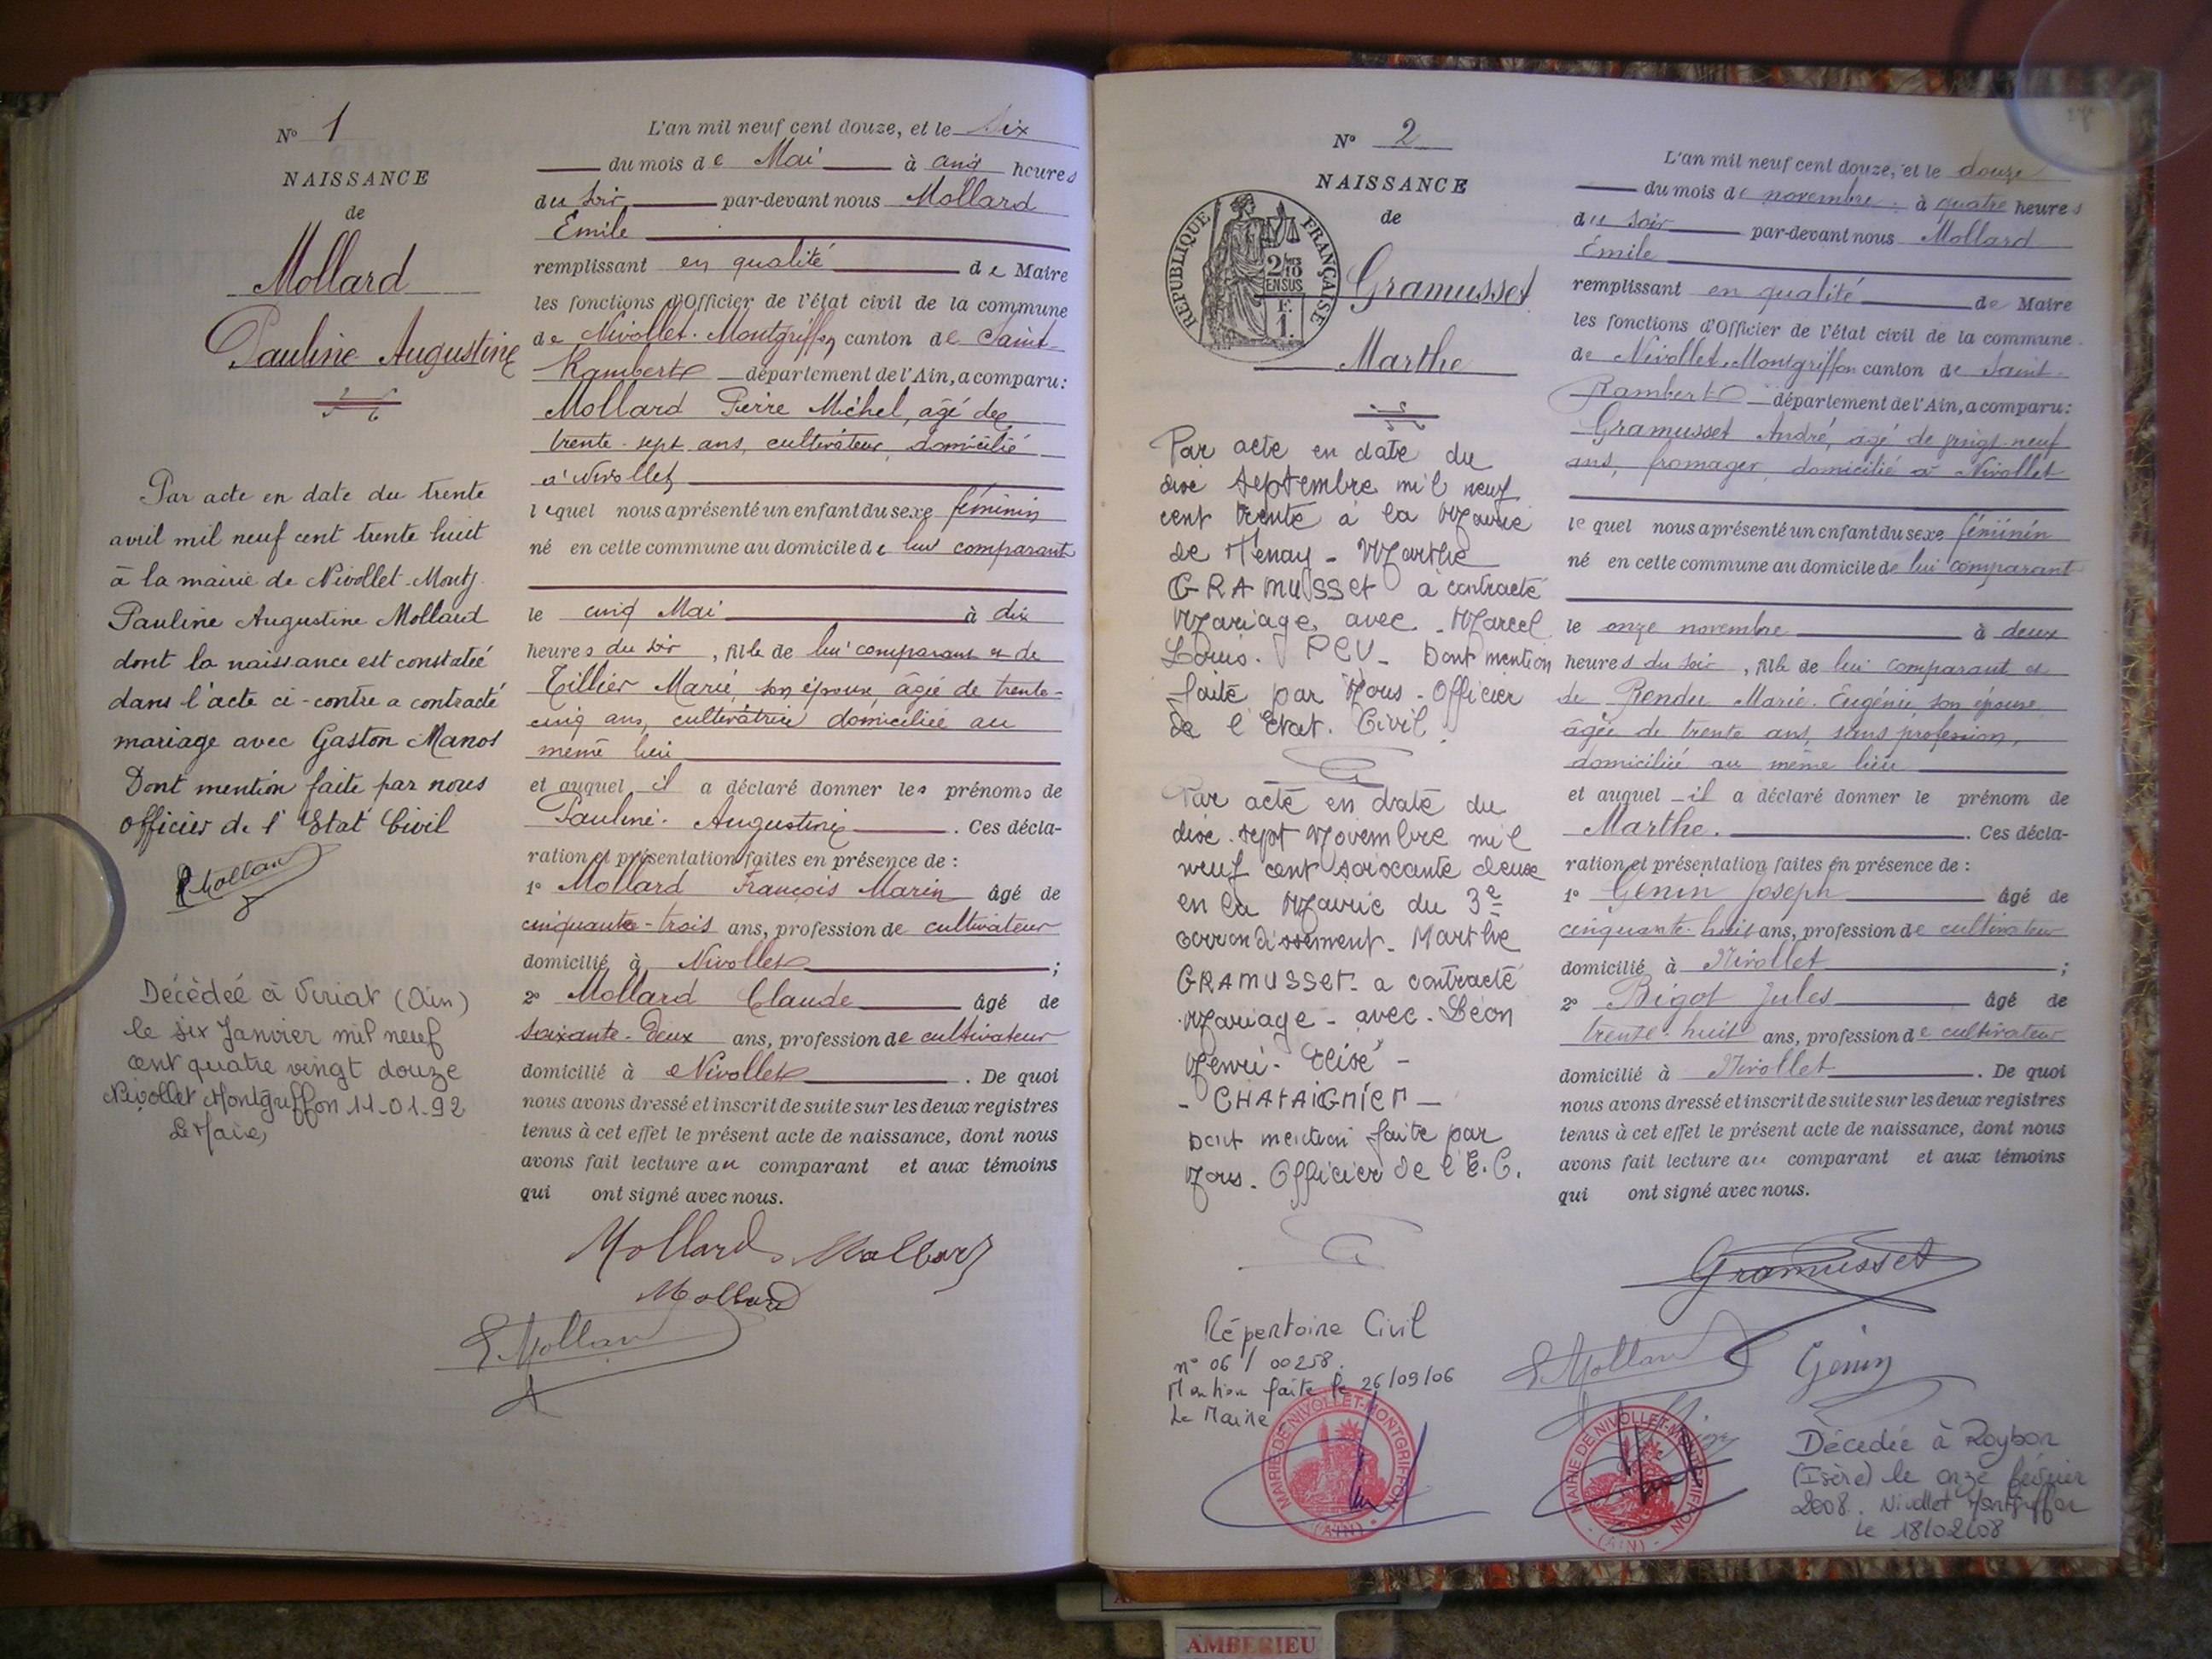 N° 1
NAISSANCE
de
Mollard
Pauline Augustine
Par acte en date du trente
avril mil neuf cent trente huit
à la mairie de Nivollet-Montg.
Pauline Augustine Mollard
dont la naissance est constatée
dans l'acte ci-contre a contracté
mariage avec Gaston Manos
Dont mention faite par nous
officier de l'Etat Civil
Mollard
Décédée à Viriat (Ain)
le six Janvier mil neuf
cent quatre vingt douze
Nivollet Montgriffon 11-01-92
Le Maire,
L'an mil neuf cent douze, et le six
du mois de Mai à cinq heures
du soir par-devant nous Mollard
Emile
remplissant en qualité de Maire
les fonctions d'Officier de l'état civil de la commune
de Nivollet-Montgriffon canton de Saint-
Rambert département de l'Ain, a comparu:
Mollard Pierre Michel, âgé de
trente-sept ans, cultivateur, domicilié
à Nivollet
lequel nous a présenté un enfant du sexe féminin
né en cette commune au domicile de lui comparant
le cinq Mai à dix
heures du soir, fille de lui comparant et de
Tillier Marie, son épouse, âgée de trente-
cinq ans, cultivatrice domiciliée au
même lieu
et auquel il a déclaré donner les prénoms de
Pauline-Augustine. Ces décla-
ration et présentation faites en présence de :
1° Mollard François Marin âgé de
cinquante-trois ans, profession de cultivateur
domicilié à Nivollet ;
2° Mollard Claude âgé de
soixante-deux ans, profession de cultivateur
domicilié à Nivollet. De quoi
nous avons dressé et inscrit de suite sur les deux registres
tenus à cet effet le présent acte de naissance, dont nous
avons fait lecture au comparant et aux témoins
qui ont signé avec nous.
Mollard Mollard
Mollard
E Mollard
N° 2
NAISSANCE
de
RÉPUBLIQUE FRANÇAISE
2/10
EN SUS
F.
1.
Gramusset
Marthe
Par acte en date du
dix septembre mil neuf
cent trente à la Mairie
de Tenay - Marthe
GRAMUSSET a contracté
Mariage avec Marcel
Louis. Dont mention
faite par Nous - Officier
de l'Etat Civil
Par acte en date du
dix-sept Novembre mil
neuf cent soixante deux
en la Mairie du 3e
arrondissement - Marthe
GRAMUSSET - a contracté
Mariage - avec - Léon
Henri - Elisé -
- CHATAIGNIER -
Dont mention faite par
Nous. Officier de l'E.C.
Répertoire Civil
n° 06 / 00258.
Mention faite le 26/09/06
Le Maire
MAIRIE DE NIVOLLET-MONTGRIFFON
(AIN)
L'an mil neuf cent douze, et le douze
du mois de novembre à quatre heures
du soir par-devant nous Mollard
Emile
remplissant en qualité de Maire
les fonctions d'Officier de l'état civil de la commune
de Nivollet-Montgriffon canton de Saint-
Rambert département de l'Ain, a comparu:
Gramusset André, âgé de vingt-neuf
ans, fromager, domicilié à Nivollet
lequel nous a présenté un enfant du sexe féminin
né en cette commune au domicile de lui comparant
le onze novembre à deux
heures du soir, fille de lui comparant et
de Rendu Marie-Eugénie son épouse
âgée de trente ans, sans profession,
domiciliée au même lieu
et auquel il a déclaré donner le prénom de
Marthe. Ces décla-
ration et présentation faites en présence de :
1° Genin Joseph âgé de
cinquante-huit ans, profession de cultivateur
domicilié à Nivollet ;
2° Bigot Jules âgé de
trente-huit ans, profession de cultivateur
domicilié à Nivollet. De quoi
nous avons dressé et inscrit de suite sur les deux registres
tenus à cet effet le présent acte de naissance, dont nous
avons fait lecture au comparant et aux témoins
qui ont signé avec nous.
Gramusset
E Mollard Genin
MAIRIE DE NIVOLLET-MONTGRIFFON
(AIN)
Décédée à Roybon
(Isère) le onze février
2008. Nivollet Montgriffon
le 18/02/08
AMBERIEU